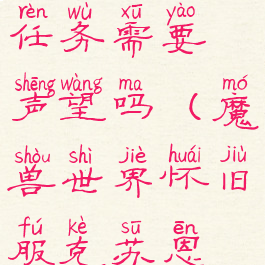 rèn wù xū yào
任务需要
shēng wàng ma mó
声望吗（魔
shòu shì jiè huái jiù
兽世界怀旧
fú kè sū ēn
服克苏恩